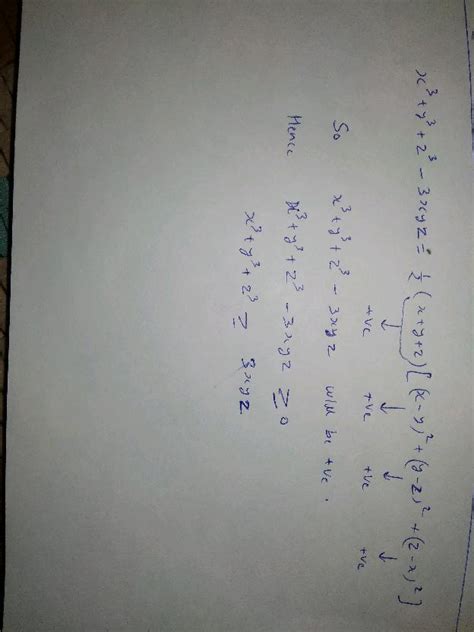 x³+y³+z³-3xyz = ½ (x+y+z) [(x-y)²+(y-z)²+(z-x)²]
+ve +ve +ve +ve
So x³+y³+z³-3xyz will be +ve.
Hence x³+y³+z³-3xyz ≥ 0
x³+y³+z³ ≥ 3xyz